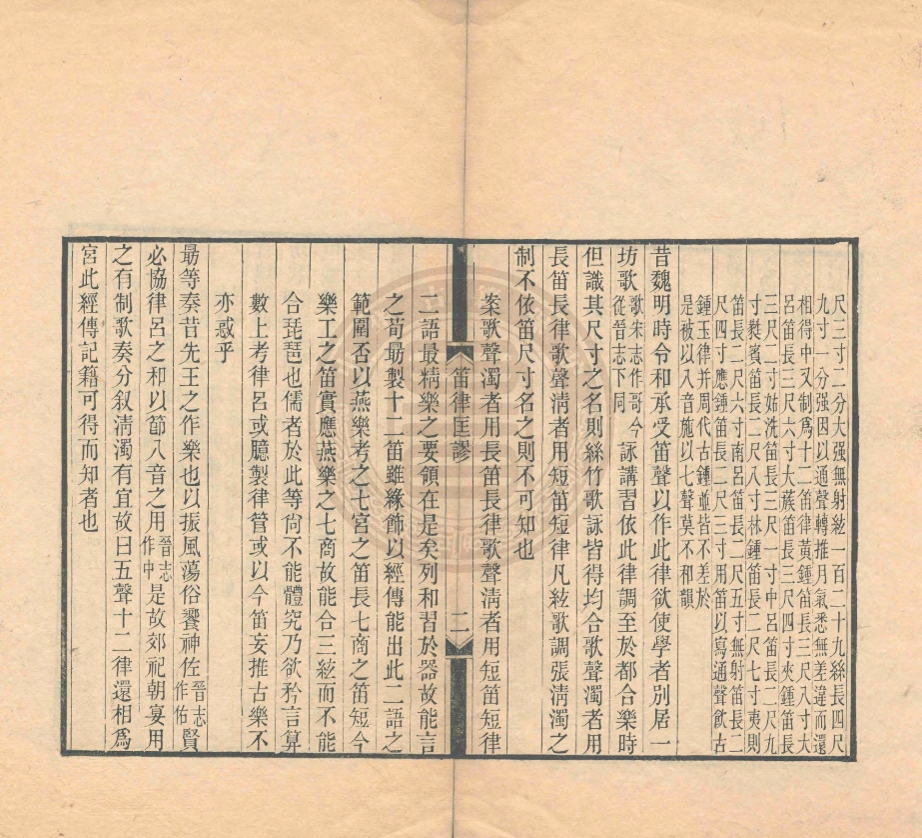 尺三寸二分大强無射絃一百二十九絲長四尺
九寸一分强因以通聲轉推月氣悉無差違而還
相得中又制爲十二笛律黃鍾笛長三尺八寸大
呂笛長三尺六寸大蔟笛長三尺四寸夾鍾笛長
三尺二寸姑洗笛長三尺一寸中呂笛長二尺九
寸㽔賓笛長二尺八寸林鍾笛長二尺七寸夷則
笛長二尺六寸南呂笛長二尺五寸無射笛長二
尺四寸應鍾笛長二尺三寸用笛以寫通聲飲古
鍾玉律并周代古鍾並皆不差於
是被以八音施以七聲莫不和韻
昔魏明時令和承受笛聲以作此律欲使學者別居一
坊歌歌宋志作哥今從晉志下同詠講習依此律調至於都合樂時
但識其尺寸之名則絲竹歌詠皆得均合歌聲濁者用
長笛長律歌聲淸者用短笛短律凡絃歌調張淸濁之
制不依笛尺寸名之則不可知也
案歌聲濁者用長笛長律歌聲淸者用短笛短律
笛律匡謬
二
二語最精樂之要領在是矣列和習於器故能言
之荀勗製十二笛雖緣飾以經傳能出此二語之
範圍否以燕樂考之七宮之笛長七商之笛短今
樂工之笛實應燕樂之七商故能合三絃而不能
合琵琶也儒者於此等尙不能體究乃欲矜言算
數上考律呂或臆製律管或以今笛妄推古樂不
亦惑乎
勗等奏昔先王之作樂也以振風蕩俗饗神佐晉志作佑賢
必協律呂之和以節八音之用晉志作中是故郊祀朝宴用
之有制歌奏分叙淸濁有宜故曰五聲十二律還相爲
宮此經傳記籍可得而知者也